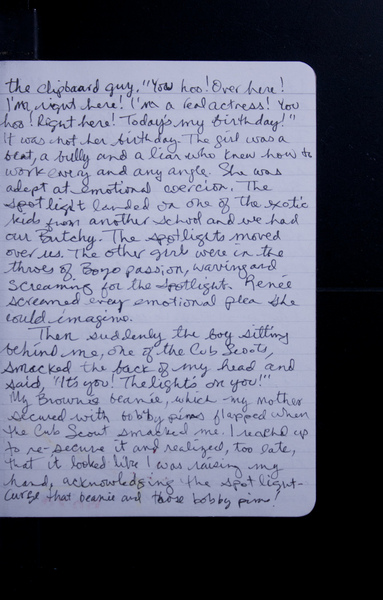 the clipboard guy. "You hoo! Over here!
I'm right here! I'm a real actress! You
hoo! Right here! Today's my birthday!"
It was not her birthday. The girl was a
beat, a bully and a liar who knew how to
work every and any angle. She was
adept at emotional coercion. The
spotlight landed on one of the exotic
kids from another school and we had
our Butchy. The spotlights moved
over us. The other girls were in the
throes of Bozo passion, waving and
screaming for the spotlight. Renée
screamed every emotional plea she
could imagine.
Then suddenly the boy sitting
behind me, one of the Cub Scouts,
smacked the back of my head and
said, "It's you! The light's on you!"
My Brownie beanie, which my mother
secured with bobby pins flapped when
the Cub Scout smacked me. I reached up
to re-secure it and realized, too late,
that it looked like I was raising my
hand, acknowledging the spotlight-
Curse that beanie and those bobby pins!